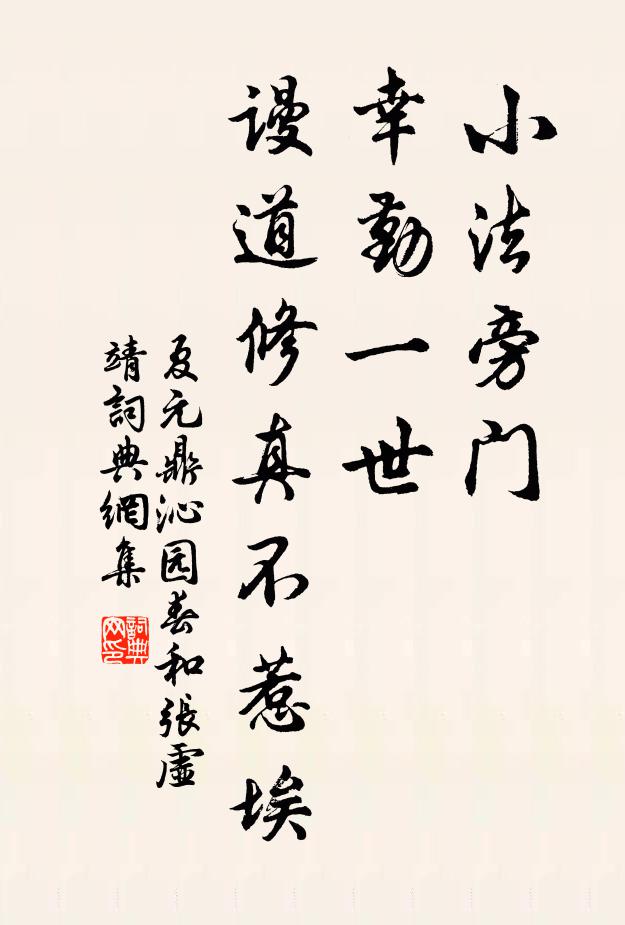 小法旁门
辛勤一世
谩道修真不惹埃
夏元鼎沁园春和張虛
靖詞典網集
詞典
网印